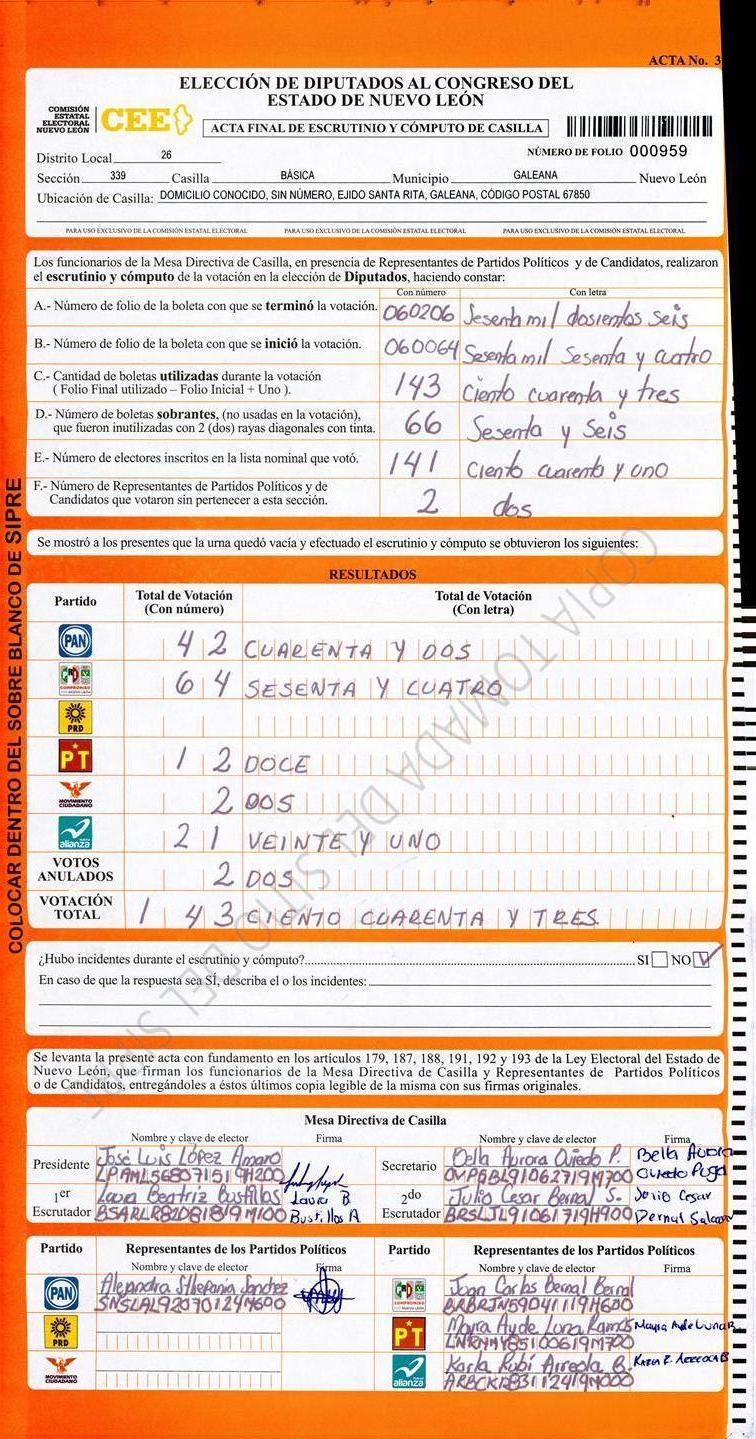 ACTA No. 3
ELECCIÓN DE DIPUTADOS AL CONGRESO DEL
ESTADO DE NUEVO LEÓN
COMISIÓN
ESTATAL
ELECTORAL
NUEVO LEÓN
CEE
ACTA FINAL DE ESCRUTINIO Y CÓMPUTO DE CASILLA
NÚMERO DE FOLIO 000959
Distrito Local 26
Sección 339 Casilla BÁSICA Municipio GALEANA Nuevo León
Ubicación de Casilla: DOMICILIO CONOCIDO, SIN NÚMERO, EJIDO SANTA RITA, GALEANA, CÓDIGO POSTAL 67850
PARA USO EXCLUSIVO DE LA COMISIÓN ESTATAL ELECTORAL PARA USO EXCLUSIVO DE LA COMISIÓN ESTATAL ELECTORAL PARA USO EXCLUSIVO DE LA COMISIÓN ESTATAL ELECTORAL
Los funcionarios de la Mesa Directiva de Casilla, en presencia de Representantes de Partidos Políticos y de Candidatos, realizaron
el escrutinio y cómputo de la votación en la elección de Diputados, haciendo constar:
Con número Con letra
A.- Número de folio de la boleta con que se terminó la votación. 060206 Sesenta mil dosientos seis
B.- Número de folio de la boleta con que se inició la votación. 060064 Sesenta mil Sesenta y cuatro
C.- Cantidad de boletas utilizadas durante la votación
( Folio Final utilizado – Folio Inicial + Uno ). 143 Ciento cuarenta y tres
D.- Número de boletas sobrantes, (no usadas en la votación),
que fueron inutilizadas con 2 (dos) rayas diagonales con tinta. 66 Sesenta y Seis
E.- Número de electores inscritos en la lista nominal que votó. 141 Ciento cuarenta y uno
F.- Número de Representantes de Partidos Políticos y de
Candidatos que votaron sin pertenecer a esta sección. 2 dos
Se mostró a los presentes que la urna quedó vacía y efectuado el escrutinio y cómputo se obtuvieron los siguientes:
RESULTADOS
Partido Total de Votación (Con número) Total de Votación (Con letra)
PAN 42 CUARENTA Y DOS
PRI COMPROMISO 64 SESENTA Y CUATRO
PRD
PT 12 DOCE
MOVIMIENTO CIUDADANO 2 DOS
alianza 21 VEINTE Y UNO
VOTOS ANULADOS 2 DOS
VOTACIÓN TOTAL 143 CIENTO CUARENTA Y TRES
COPIA TOMADA DEL SITIO DEL SIPRE
COLOCAR DENTRO DEL SOBRE BLANCO DE SIPRE
¿Hubo incidentes durante el escrutinio y cómputo? SI NO
En caso de que la respuesta sea SÍ, describa el o los incidentes:
Se levanta la presente acta con fundamento en los artículos 179, 187, 188, 191, 192 y 193 de la Ley Electoral del Estado de
Nuevo León, que firman los funcionarios de la Mesa Directiva de Casilla y Representantes de Partidos Políticos
o de Candidatos, entregándoles a éstos últimos copia legible de la misma con sus firmas originales.
Mesa Directiva de Casilla
Nombre y clave de elector Firma Nombre y clave de elector Firma
Presidente José Luis López Amaro
Secretario Bella Aurora Oviedo P. Bella Aurora
Oviedo Puga
1er Escrutador Laura Beatriz Bustillos Laura B
Bustillos A
2do Escrutador Julio Cesar Bernal S. Julio Cesar
Bernal
Partido Representantes de los Partidos Políticos Partido Representantes de los Partidos Políticos
Nombre y clave de elector Firma Nombre y clave de elector Firma
PAN Alejandra Sthepania Sanchez
PRI COMPROMISO Juan Carlos Bernal Bernal
PRD
PT Mayra Ayde Luna Ramos
MOVIMIENTO CIUDADANO
alianza Karla Rubí Arreola B.